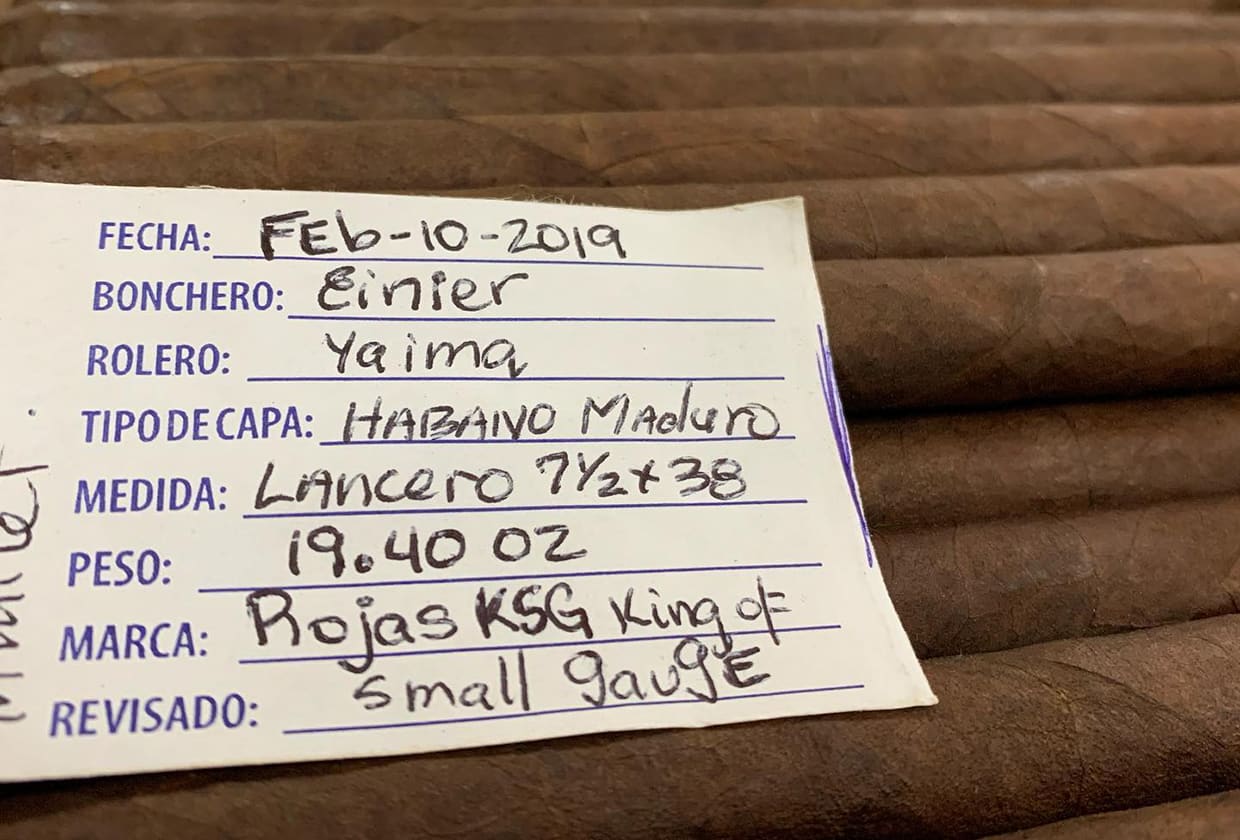 FECHA: FEb-10-2019
BONCHERO: Einier
ROLERO: Yaima
TIPO DE CAPA: HABANO MAduro
MEDIDA: LAncero 7½x38
PESO: 19.40 OZ
MARCA: Rojas KSG King of
REVISADO: small gaugE